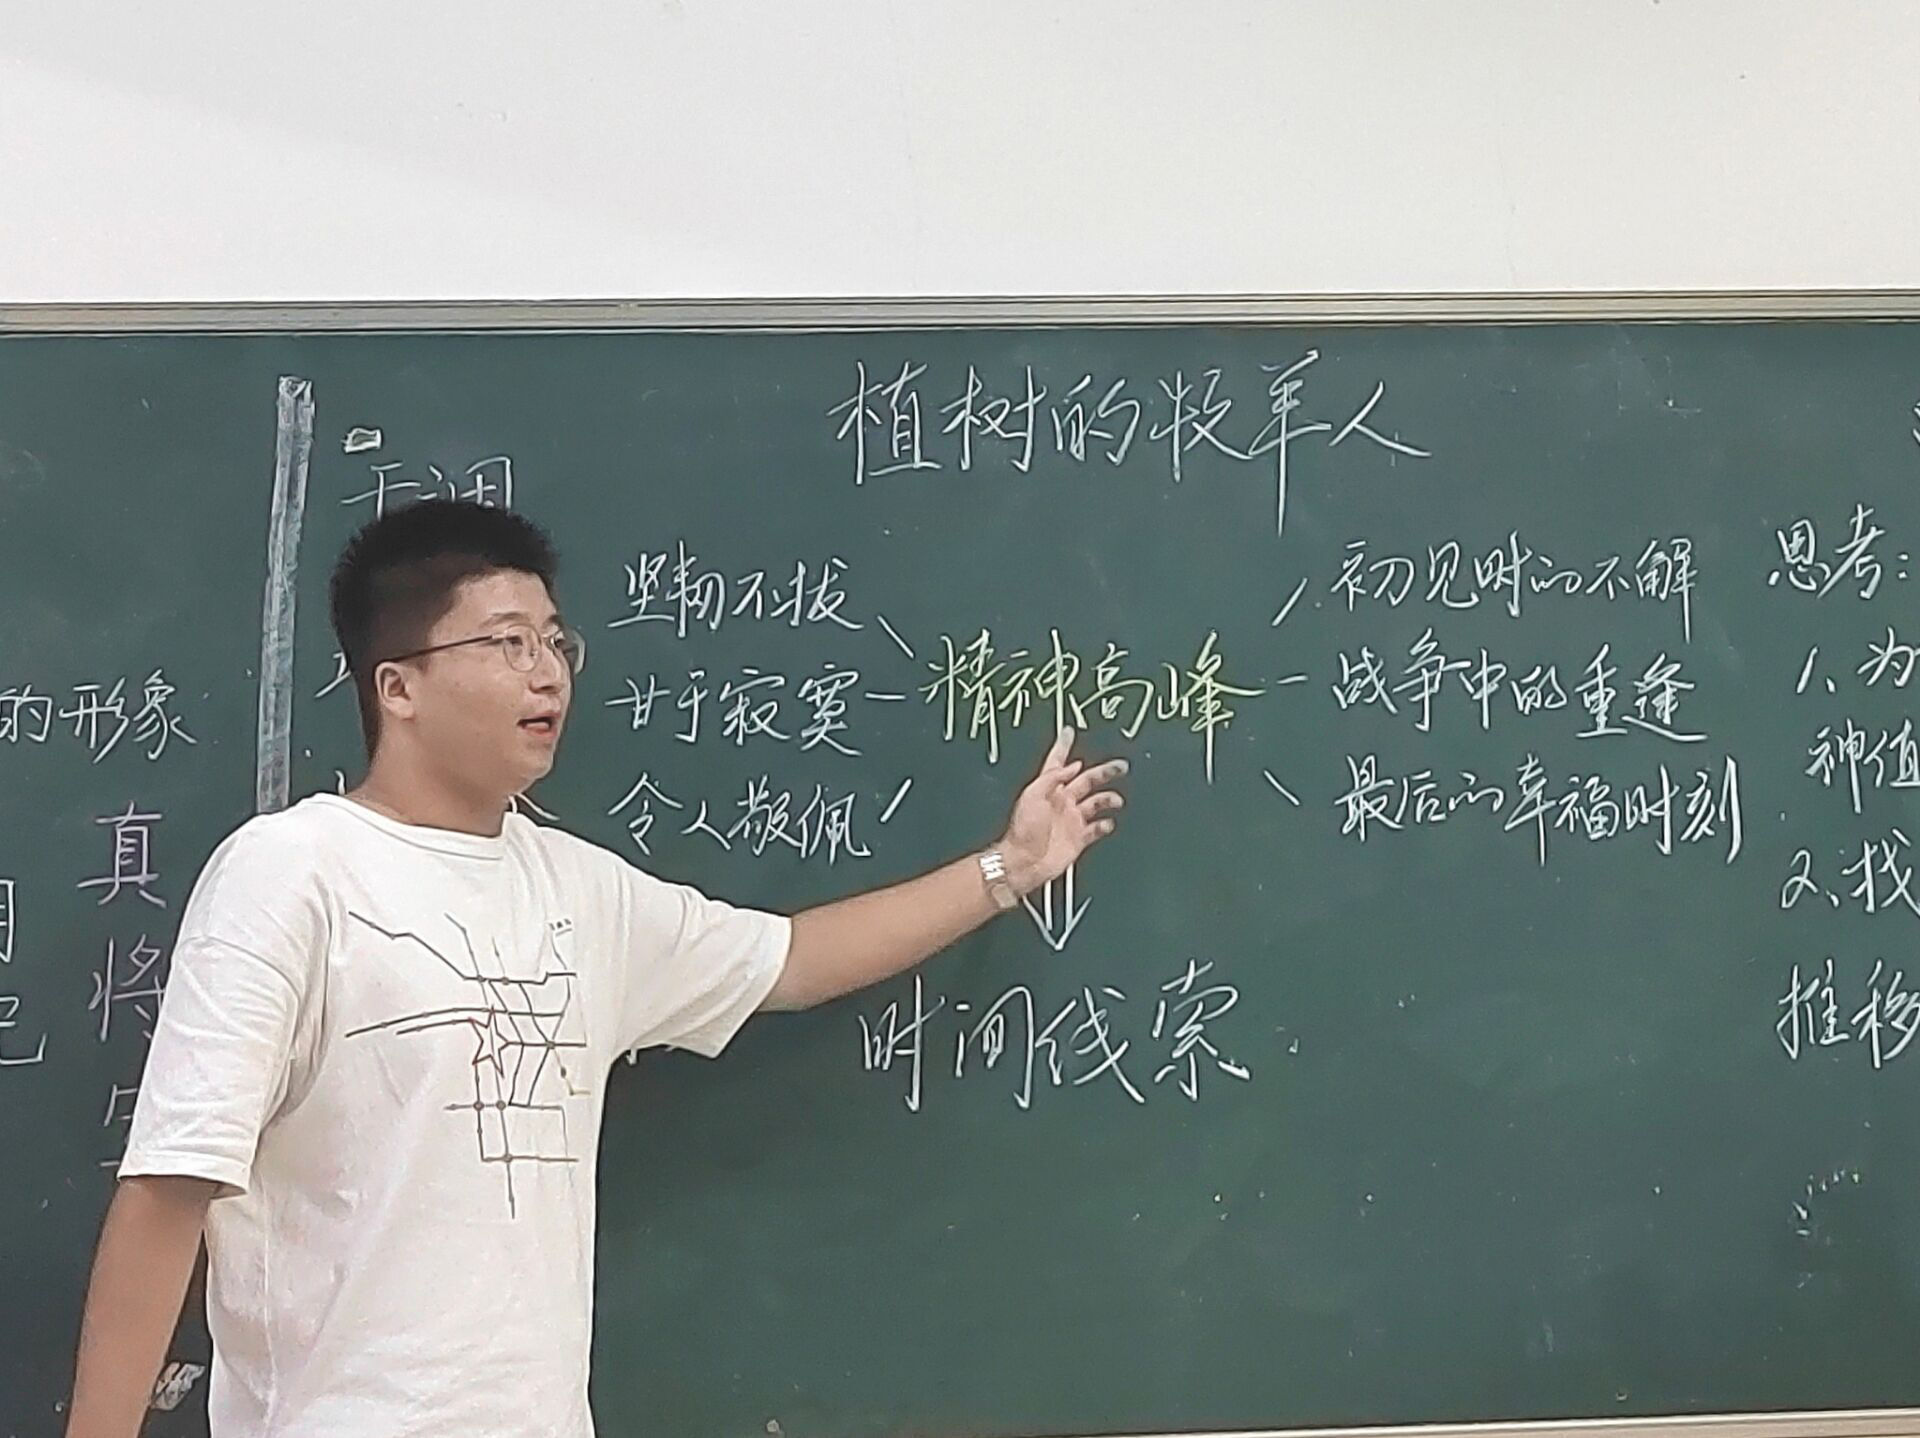 植树的牧羊人
干调
坚韧不拔
甘于寂寞
令人敬佩
精神高峰
初见时的不解
战争中的重逢
最后的幸福时刻
时间线索
思考:
1、为
神值
2、找
推移
的形象
真
将